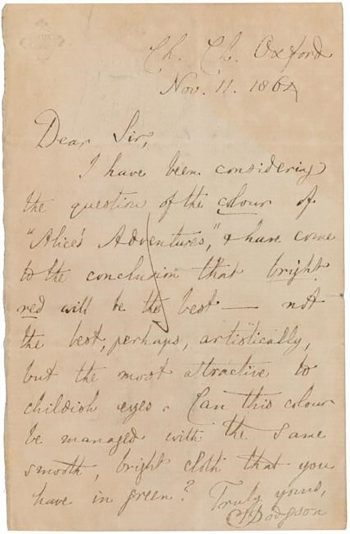 Ch. Ch. Oxford
Nov. 11. 1864
Dear Sir,
I have been considering
the question of the colour of
"Alice's Adventures," & have come
to the conclusion that bright
red will be the best — not
the best, perhaps, artistically,
but the most attractive to
childish eyes. Can this colour
be managed with the same
smooth, bright cloth that you
have in green? Truly yours,
CLDodgson